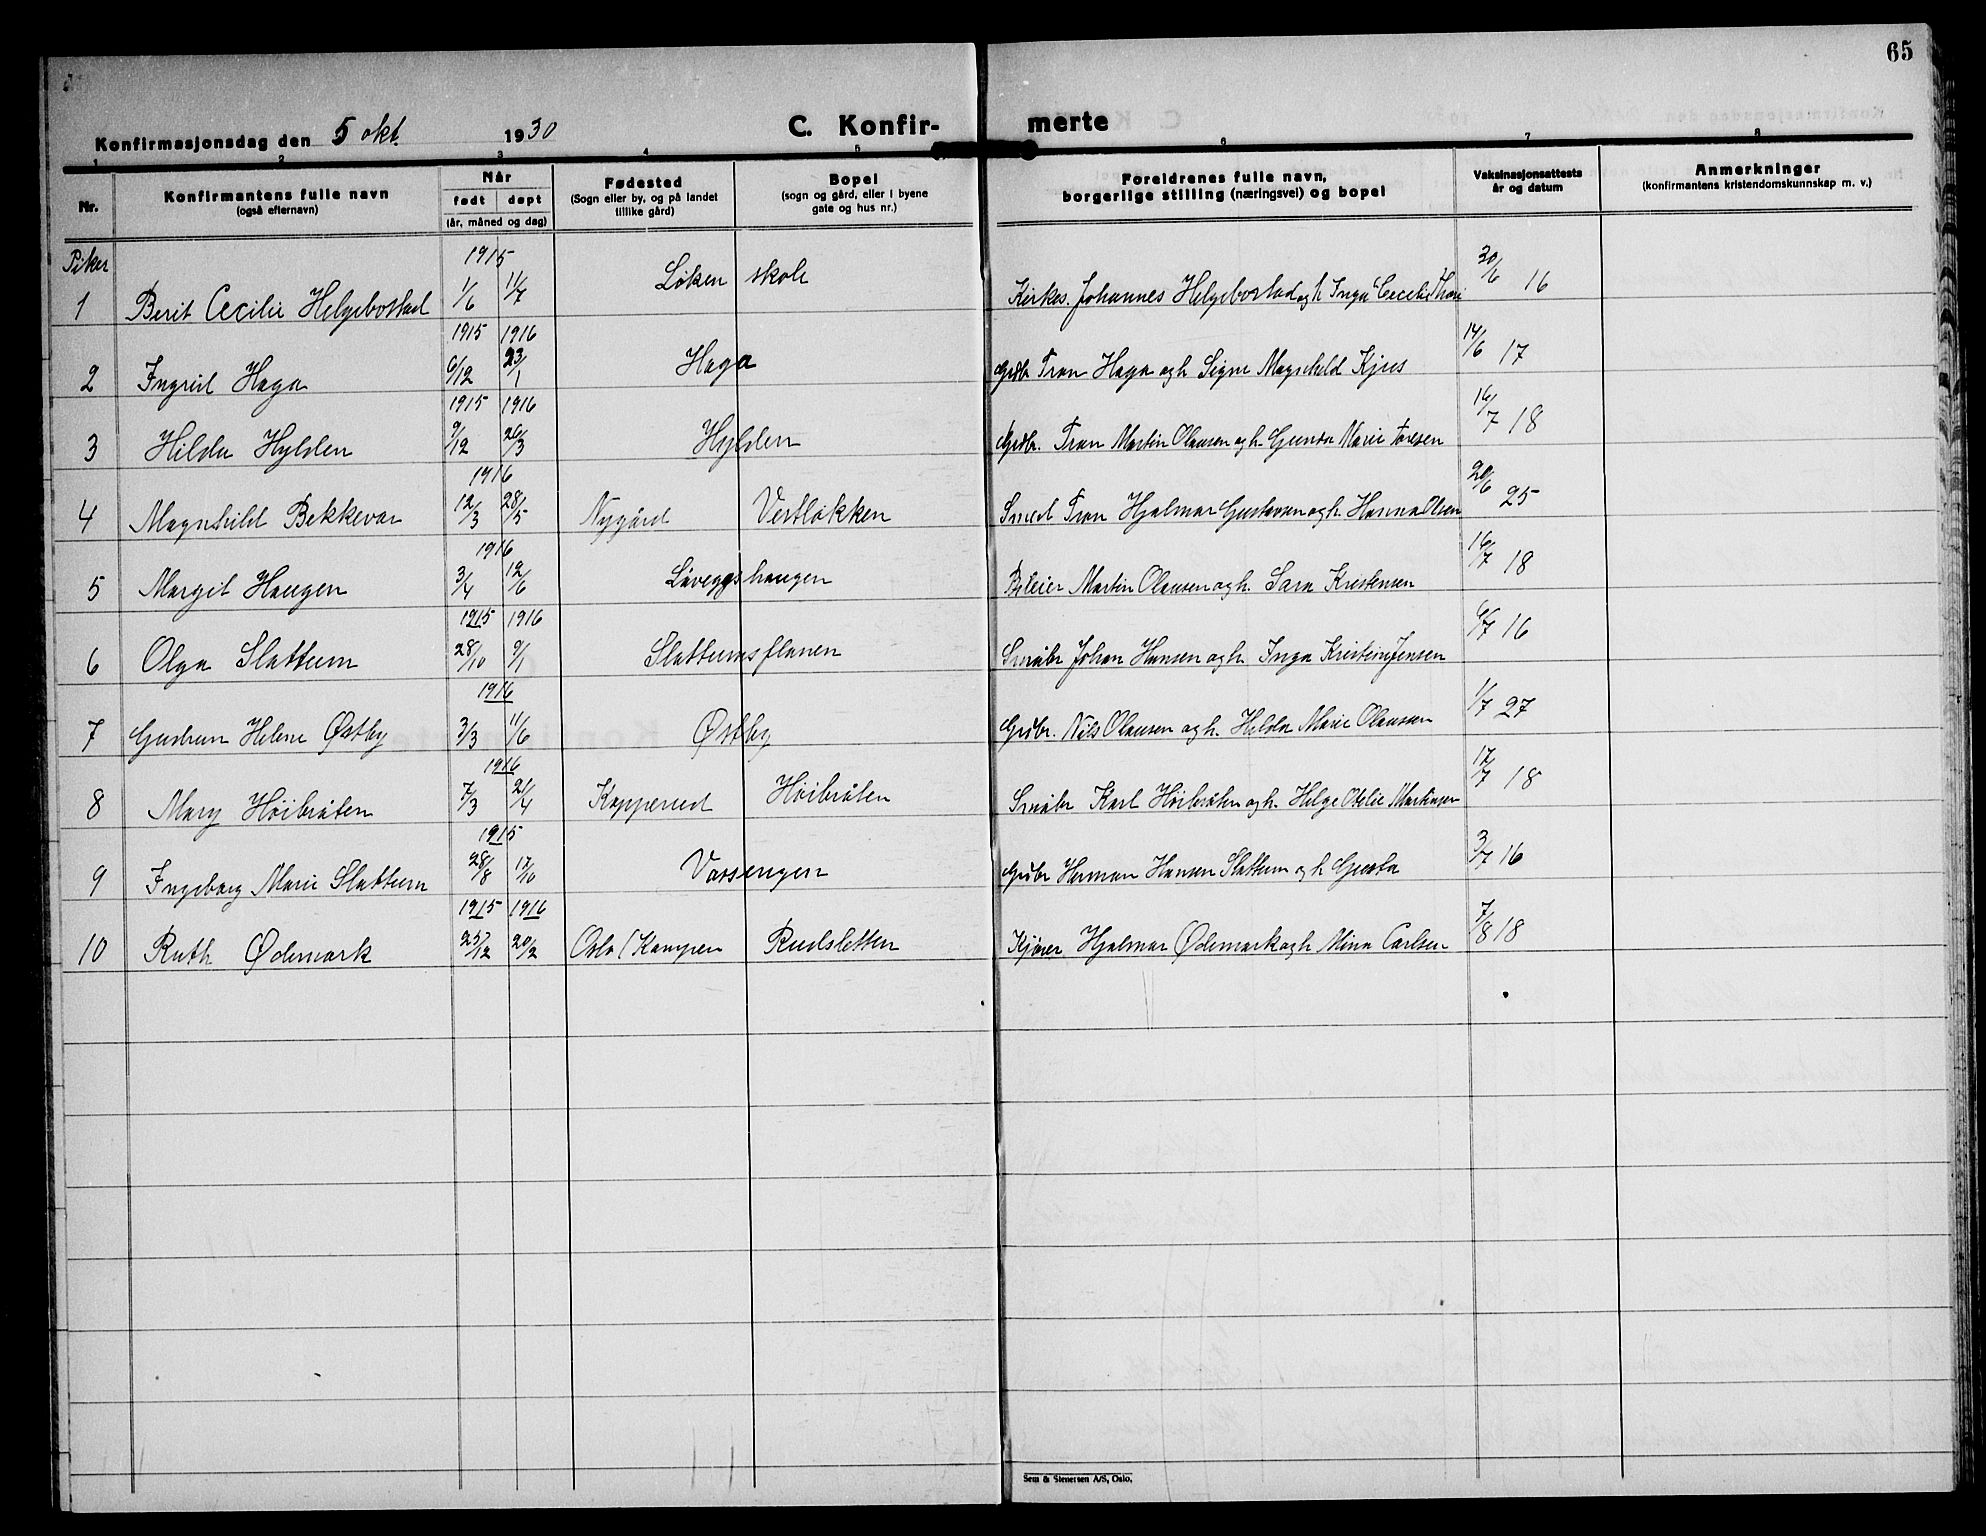 65
Konfirmasjonsdag den 5 okt. 1930 C. Konfir- merte
1 2 3 4 5 6 7 8
Nr. Konfirmantens fulle navn (også efternavn) Når født døpt (år, måned og dag) Fødested (Sogn eller by, og på landet tillike gård) Bopel (sogn og gård, eller i byene gate og hus nr.) Foreldrenes fulle navn, borgerlige stilling (næringsvei) og bopel Vaksinasjonsattests år og datum Anmerkninger (konfirmantens kristendomskunnskap m. v.)
Piker
1915
1 Berit Cecilie Helgebostad 1/6 11/7 Løken skole Kirkes. Johannes Helgebostad og h. Inga Cecelie 30/6 16
1915 1916
2 Ingrid Haga 6/12 23/1 Haga Grdbr Tron Haga og h. Signe Magnhild Kjus 14/6 17
1915 1916
3 Hilda Hylden 9/12 26/3 Hylden Grdbr. Tron Martin Olausen og h. Gunda Marie Toresen 16/7 18
1916
4 Magnhild Bekkevar 12/3 28/5 Nygård Vestløkken Smed Tron Hjalmar Gustavsen og h. Hanna Olsen 20/6 25
1916
5 Margit Haugen 3/4 12/6 Låveggshaugen Bileier Martin Olausen og h. Sara Kristensen 16/7 18
1915 1916
6 Olga Slattum 28/10 9/1 Slattumsflanen Småbr Johan Hansen og h. Inga Kristine Jensen 6/7 16
1916
7 Gudrun Helene Østby 3/3 11/6 Østby Grdbr. Nils Olausen og h. Hilda Marie Olaussen 1/7 27
1916
8 Mary Høibråten 7/3 21/4 Kopperud Høibråten Småbr Karl Høibråten og h. Helga Otelie Martinsen 17/7 18
1915
9 Ingeborg Marie Slattum 28/8 17/10 Vassengen Grdbr Herman Hansen Slattum og h 3/7 16
1915 1916
10 Ruth Ødemark 25/12 20/2 Oslo (Kampen Rudsletten Kjører Hjalmar Ødemark og h Mina Carlsen 7/8 18
Sem & Stenersen A/S, Oslo.